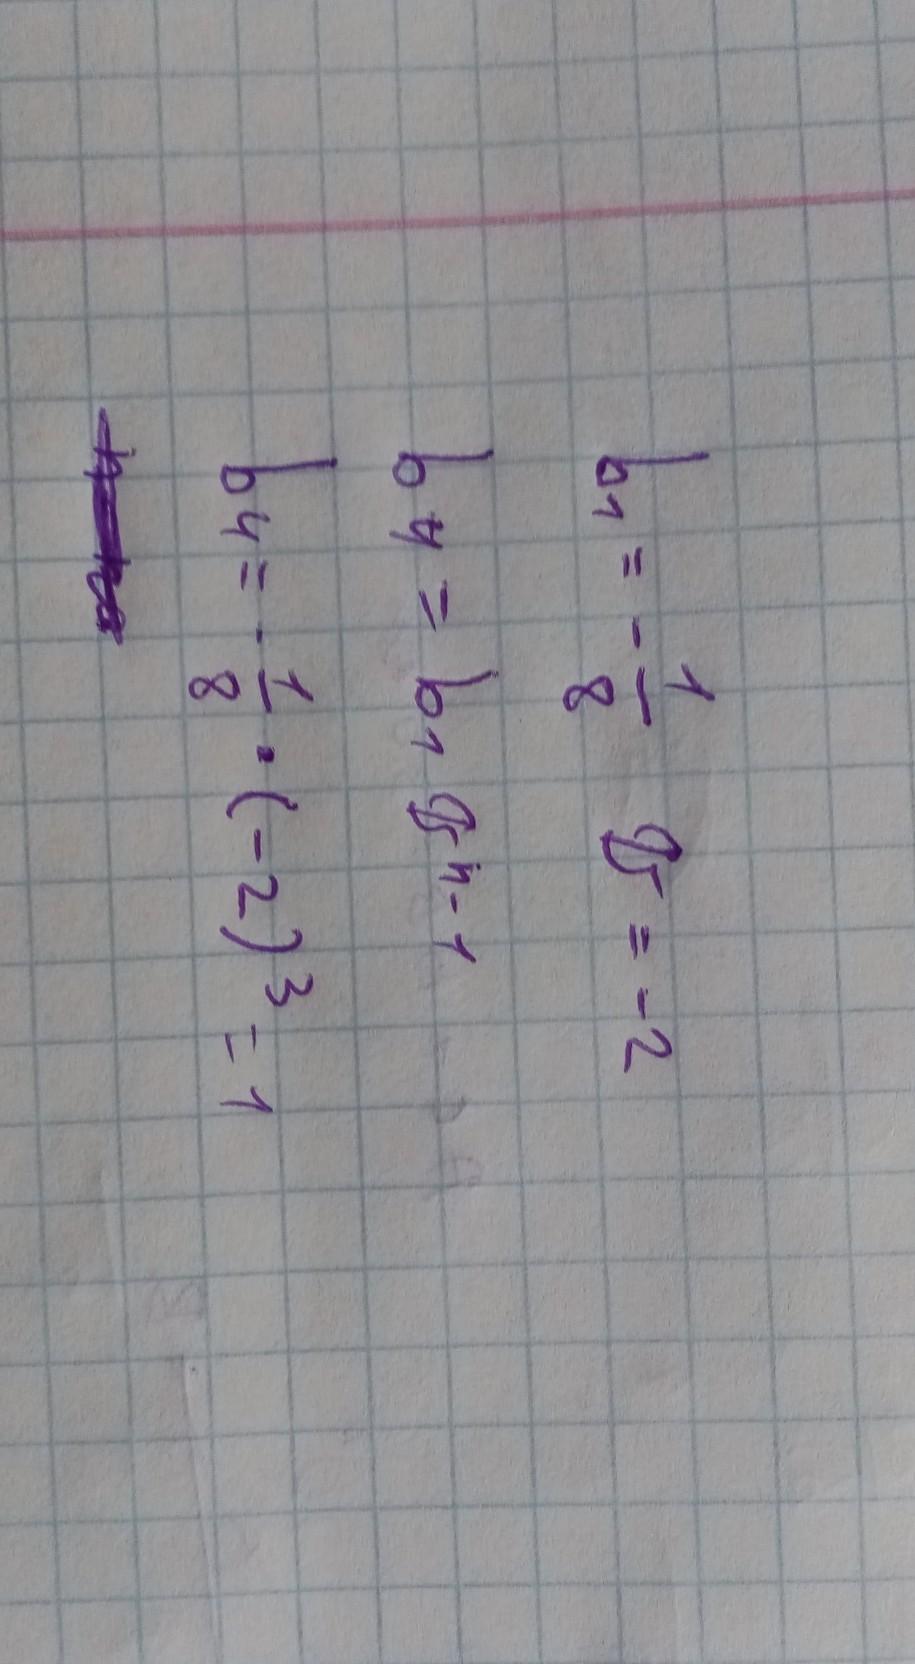 b1 = - 1/8 q = -2
b4 = b1 q^4-1
b4 = - 1/8 · (-2)^3 = 1